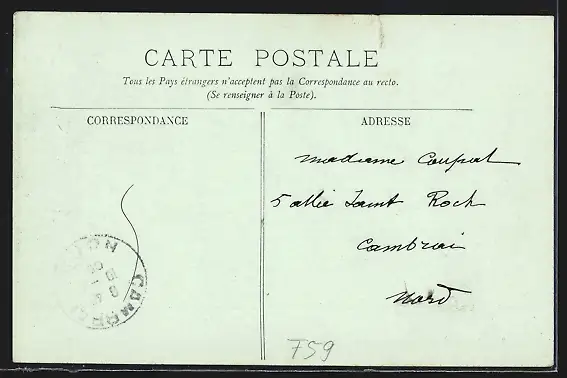 CARTE POSTALE
Tous les Pays étrangers n'acceptent pas la Correspondance au recto.
(Se renseigner à la Poste).
CORRESPONDANCE
ADRESSE
Madame Coupat
5 allée Saint Roch
Cambrai
Nord
CAMBRAI
NORD
759